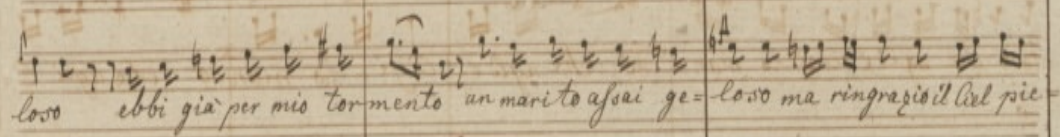 loso ebbi già per mio tormento un marito assai ge= loso ma ringrazio il Ciel pie=